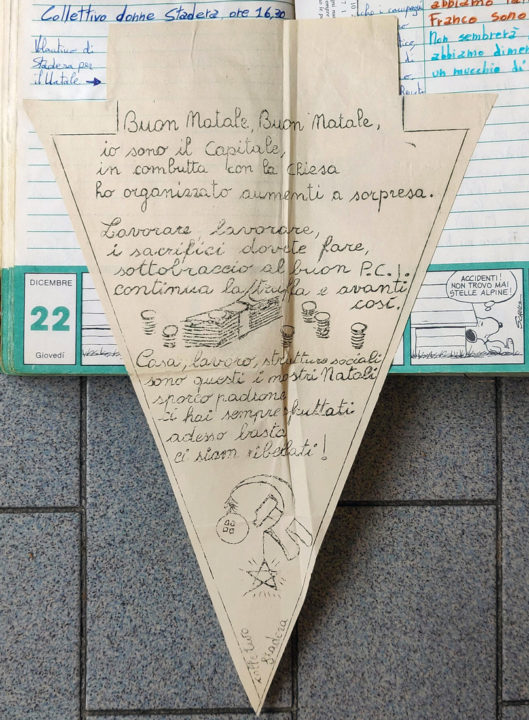 Collettivo donne Stadera, ore 16,30
Volantino di
Stadera per
il Natale →
Franco Sono
Non sembrerà
abbiamo dimen
un mucchio di
Buon Natale, Buon Natale,
io sono il Capitale,
in combutta con la chiesa
ho organizzato aumenti a sorpresa.
Lavorare, lavorare,
i sacrifici dovete fare,
sottobraccio al buon P.C.I.
continua la truffa e avanti
così.
Casa, lavoro, strutture sociali
sono questi i nostri Natali
sporco padrone
ci hai sempre sfruttati
adesso basta
ci siam ribellati!
collettivo
stadera
DICEMBRE
22
Giovedí
ACCIDENTI!
NON TROVO MAI
STELLE ALPINE!